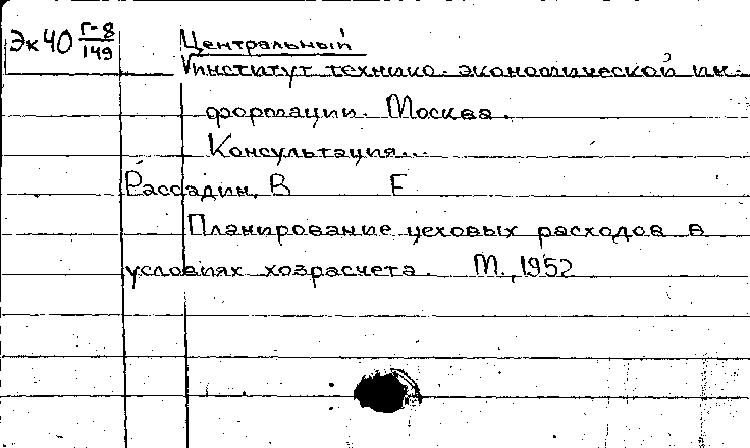 Эк40 Г-8/149
Центральный
институт технико-экономической ин-
формации. Москва.
Консультация...
Рассадин, В Е
Планирование цеховых расходов в
условиях хозрасчета. М., 1952